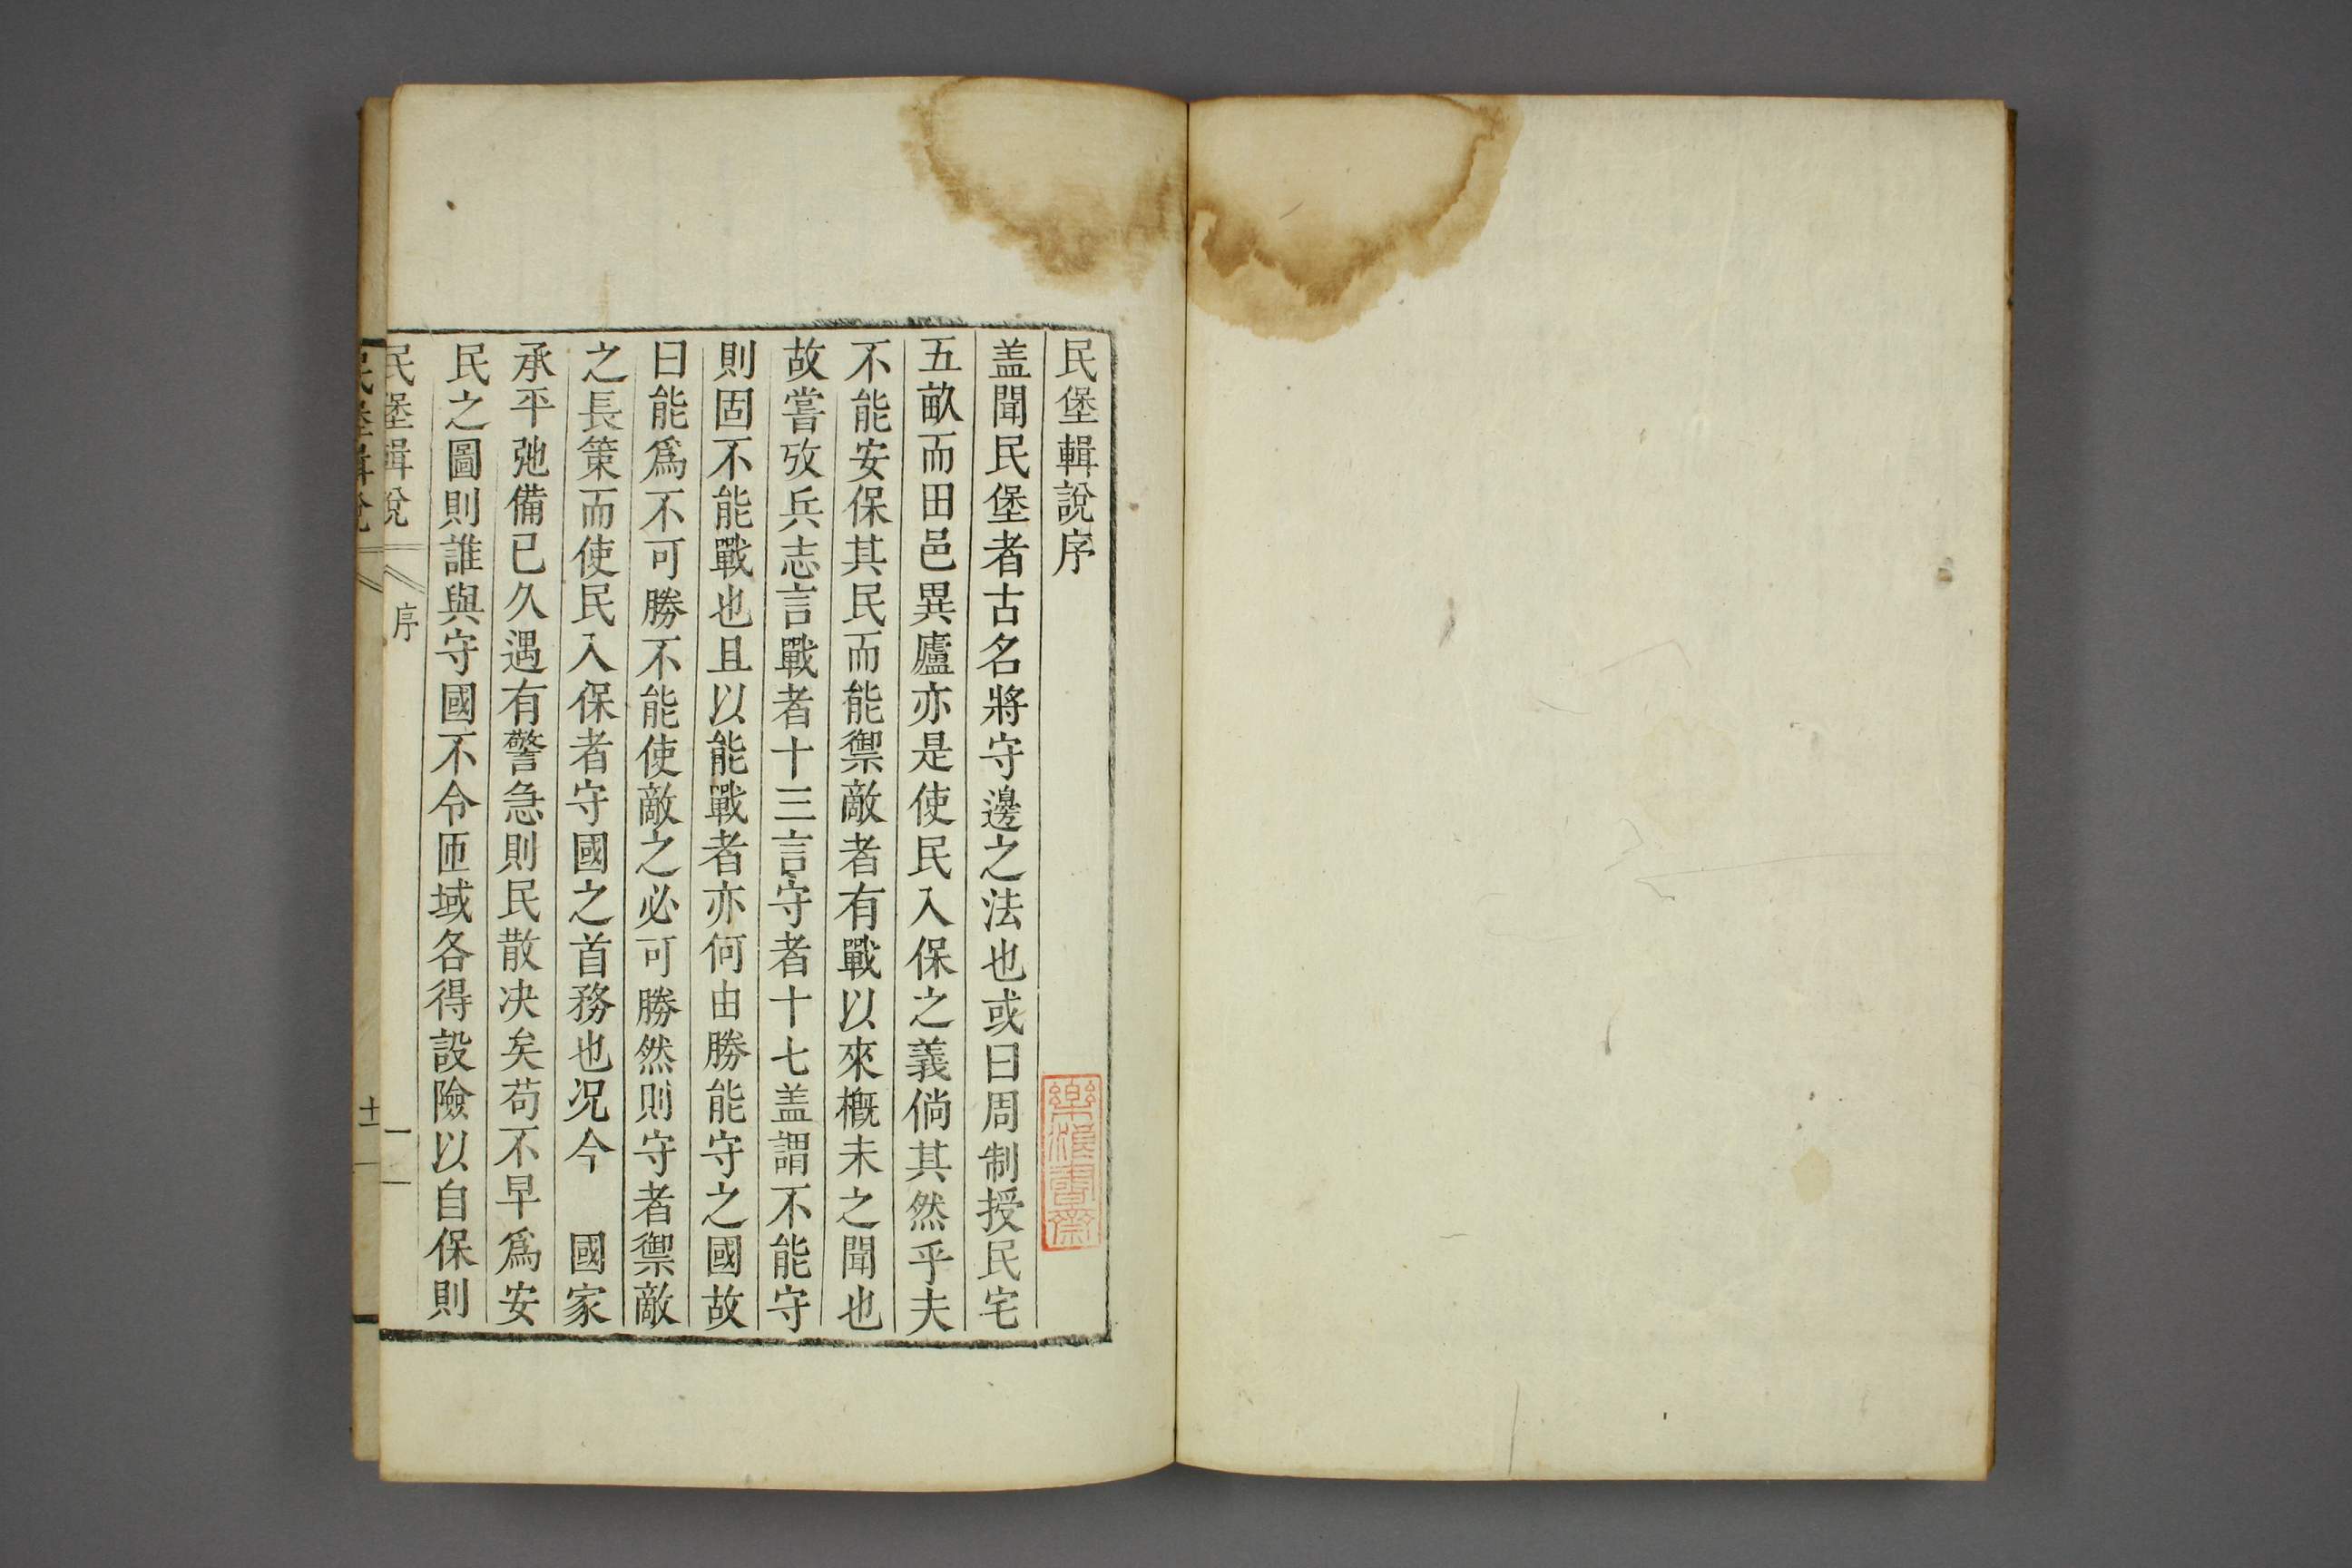 民堡輯說序
盖聞民堡者古名將守邊之法也或曰周制授民宅
五畝而田邑異廬亦是使民入保之義倘其然乎夫
不能安保其民而能禦敵者有戰以來概未之聞也
故嘗攷兵志言戰者十三言守者十七盖謂不能守
則固不能戰也且以能戰者亦何由勝能守之國故
曰能爲不可勝不能使敵之必可勝然則守者禦敵
之長策而使民入保者守國之首務也况今　國家
承平弛備已久遇有警急則民散决矣苟不早爲安
民之圖則誰與守國不令匝域各得設險以自保則
民堡輯說　序　一